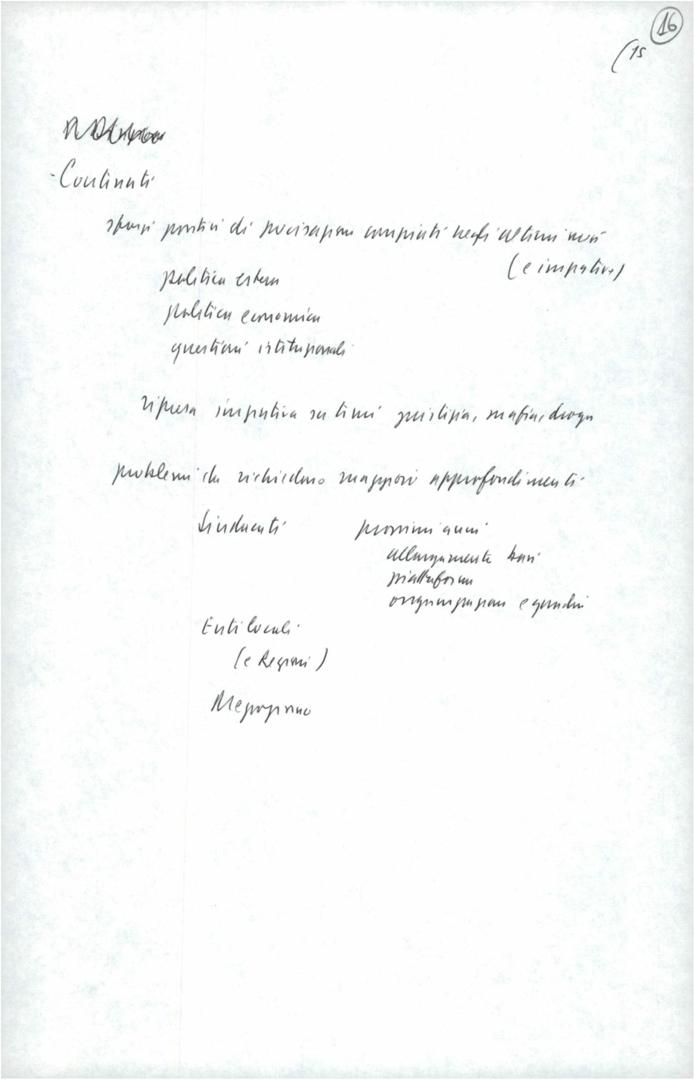 16
(15
- Continuti
sforzi positivi di precisazione compiuti negli ultimi mesi
(e iniziativa)
politica estera
politica economica
questioni istituzionali
ripresa iniziativa su temi giustizia, mafia, droga
problemi che richiedono maggiori approfondimenti
Sindacati prossimi anni
allargamento basi
piattaforma
organizzazione e quadri
Enti locali
(e Regioni)
Mezzogiorno